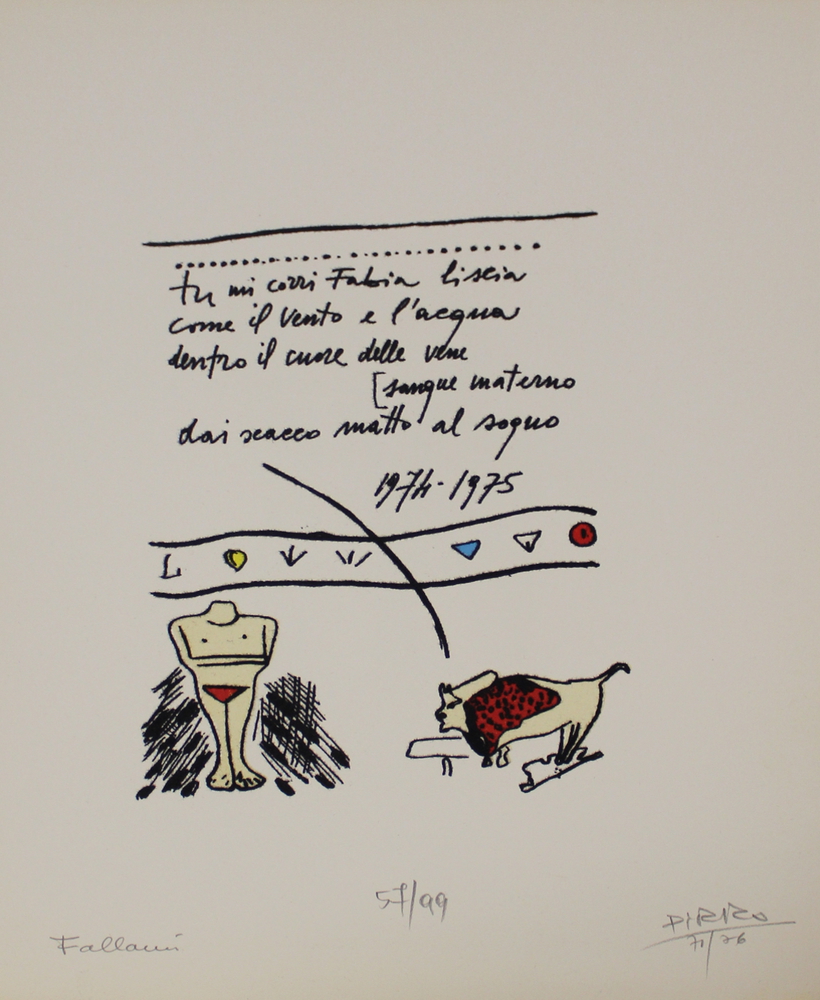 tu mi corri Fabia liscia
come il vento e l'acqua
dentro il cuore delle vene
[sangue materno
dai scacco matto al sogno
1974-1975
57/99
Fallani